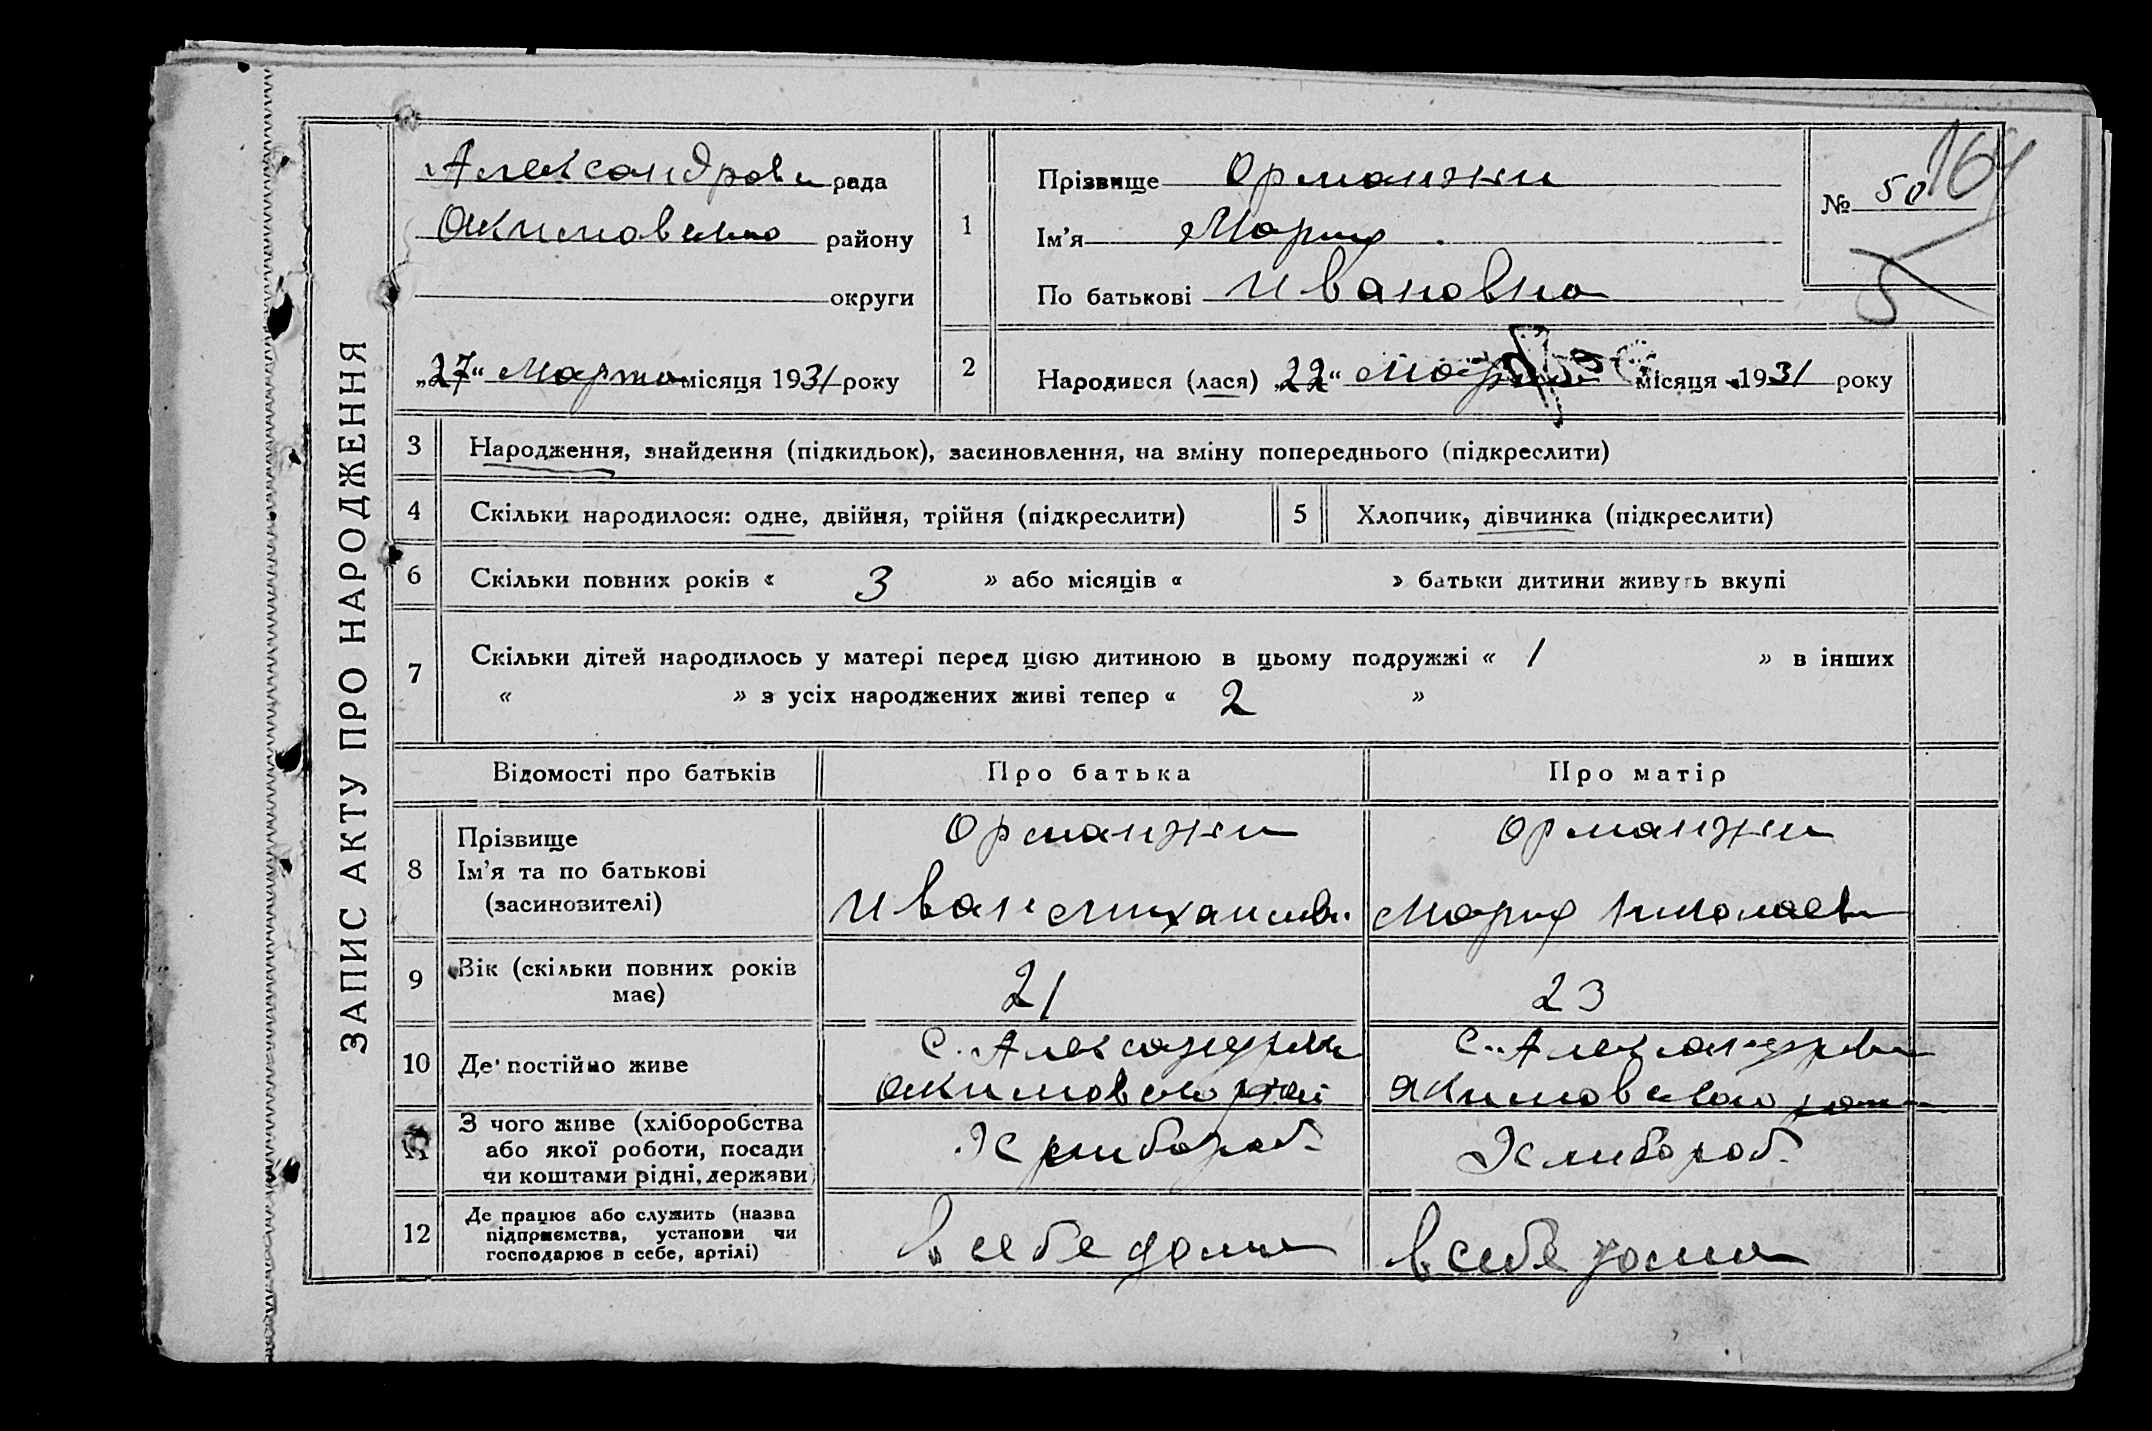 ЗАПИС АКТУ ПРО НАРОДЖЕННЯ
Александров рада
Якимовсько району
округи
„27“ Марта місяця 1931 року
1
Прізвище Орманжи
Ім’я Мария
По батькові Ивановна
№ 50
164
2
Народився (лася) „22“ Марта місяця 1931 року
3 Народження, знайдення (підкидьок), засиновлення, на зміну попереднього (підкреслити)
4 Скільки народилося: одне, двійня, трійня (підкреслити)
5 Хлопчик, дівчинка (підкреслити)
6 Скільки повних років « 3 » або місяців « » батьки дитини живуть вкупі
7 Скільки дітей народилось у матері перед цією дитиною в цьому подружжі « 1 » в інших
« » з усіх народжених живі тепер « 2 »
Відомості про батьків Про батька Про матір
8 Прізвище
Ім’я та по батькові
(засиновителі)
Орманжи
Иван Михайлов.
Орманжи
Мария Николаев
9 Вік (скільки повних років
має)
21
23
10 Де постійно живе
с. Александровк
Акимовского рай
с. Александров
Якимовского рай
11 З чого живе (хліборобства
або якої роботи, посади
чи коштами рідні, держави)
Хлибороб.
Хлибороб.
12 Де працює або служить (назва
підприємства, установи чи
господарює в себе, артілі)
в себе дома
в себе дома